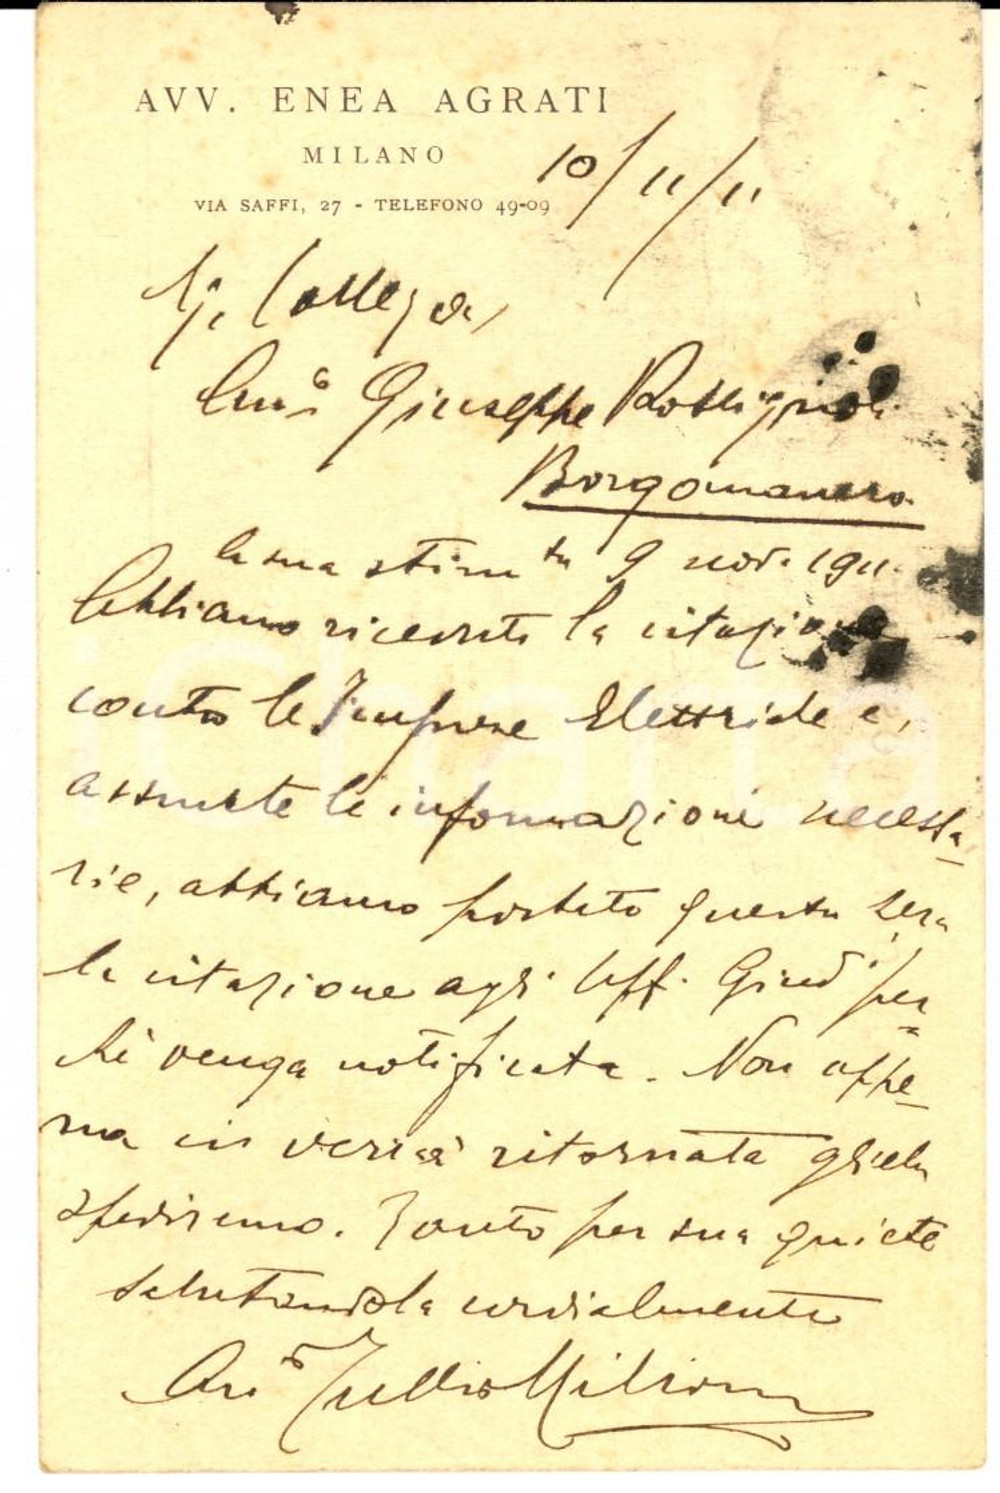 AVV. ENEA AGRATI
MILANO
VIA SAFFI, 27 - TELEFONO 49-09
10/11/11
Collega,
Giuseppe Rossignoli
Borgomanero
la sua stim ta 9 nov. 1911.
Abbiamo ricevuto la citazione
contro le Imprese Elettriche e,
assunte le informazioni necessa-
rie, abbiamo portato questa sera
la citazione agli Uff. Giud per-
chè venga notificata. Non appe-
na ci verrà ritornata gliela
spediremo. Tanto per sua quiete
salutandola cordialmente
Avv Tullio